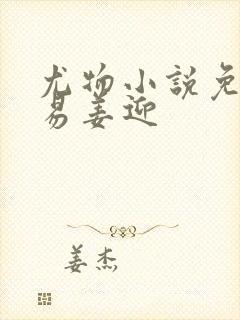 尤物小说免
易姜迎
姜杰